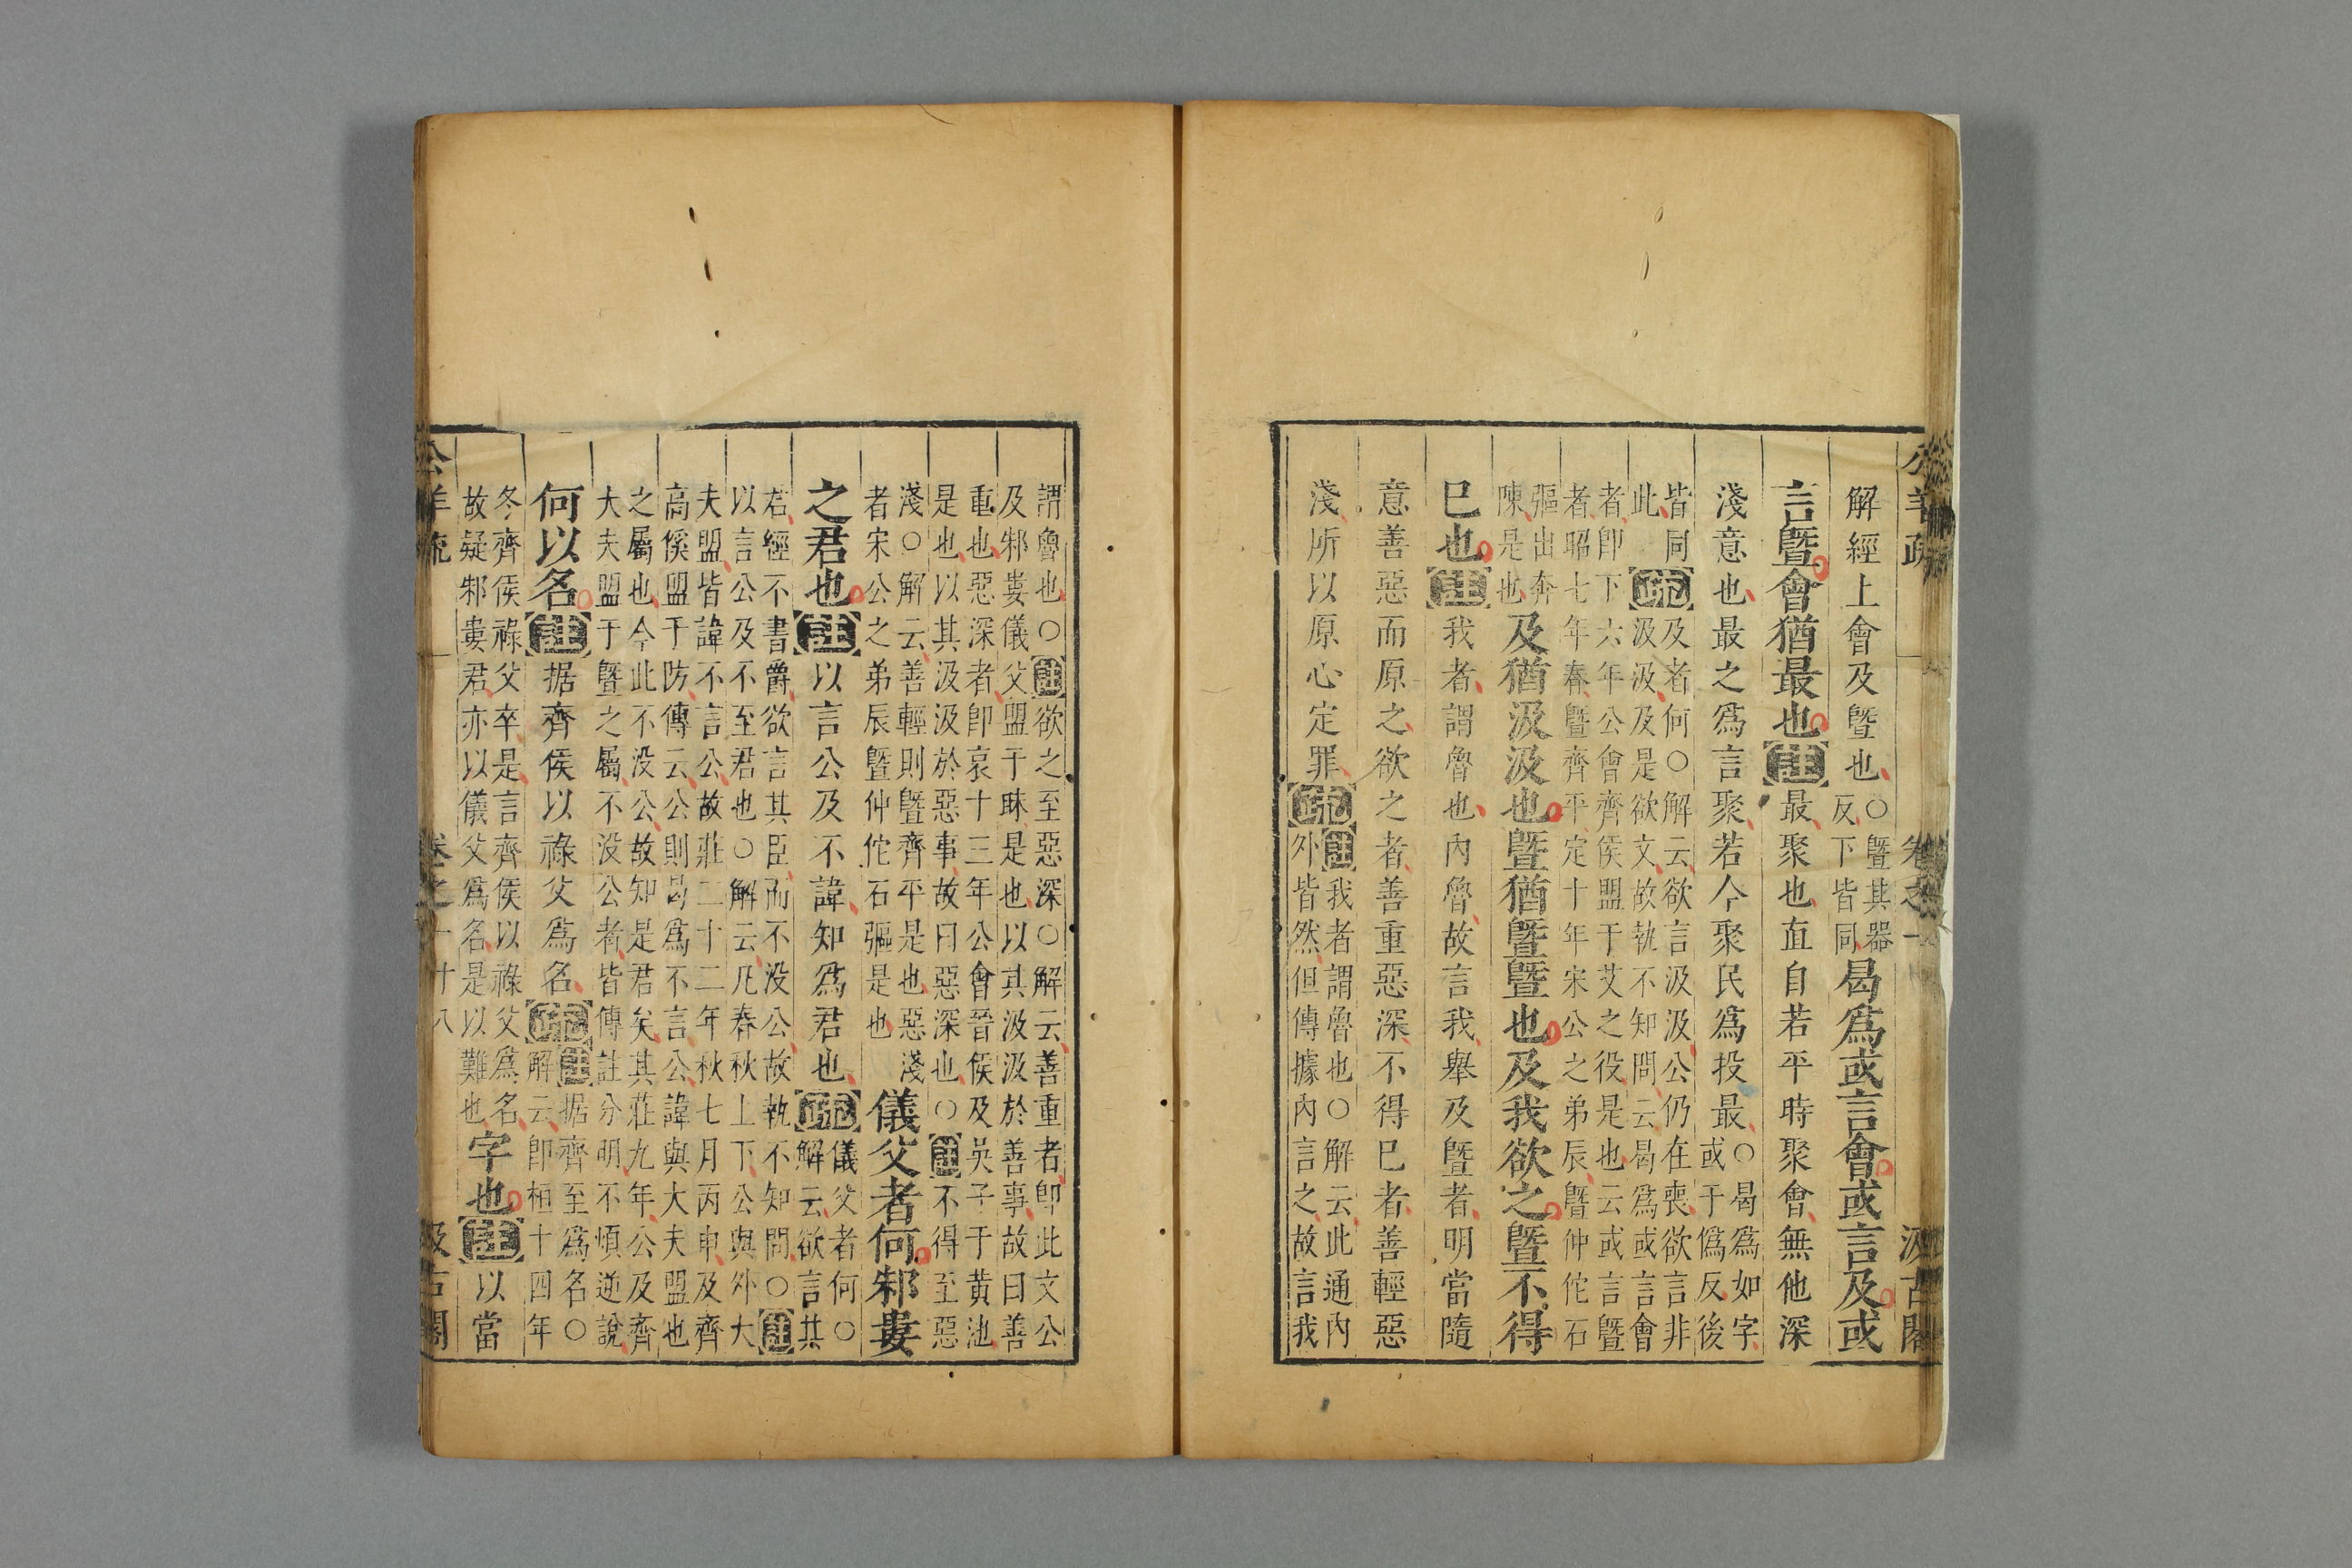 公羊疏 卷之一 汲古閣
解經上會及暨也○暨其器
反下皆同曷爲或言會或言及或
言暨會猶最也註最聚也直自若平時聚會無他深
淺意也最之爲言聚若今聚民爲投最○曷爲如字
或于僞反後
皆同
此疏及者何○解云欲言汲汲公仍在喪欲言非
汲汲及是欲文故執不知問云曷爲或言會
者卽下六年公會齊侯盟于艾之役是也云或言暨
者昭七年春暨齊平定十年宋公之弟辰暨仲佗石
彄出奔
陳是也及猶汲汲也暨猶暨暨也及我欲之暨不得
已也註我者謂魯也內魯故言我舉及暨者明當隨
意善惡而原之欲之者善重惡深不得已者善輕惡
淺所以原心定罪疏註我者謂魯也○解云此通內
外皆然但傳據內言之故言我
謂魯也○註欲之至惡深○解云善重者卽此文公
及邾婁儀父盟于眛是也以其汲汲於善事故曰善
重也惡深者卽哀十三年公會晉侯及吳子于黃池
是也以其汲汲於惡事故曰惡深也○註不得至惡
淺○解云善輕則暨齊平是也惡淺
者宋公之弟辰暨仲佗石彄是也儀父者何邾婁
之君也註以言公及不諱知爲君也疏儀父者何○
解云欲言其
君經不書爵欲言其臣而不没公故執不知問○註
以言公及不至君也○解云凡春秋上下公與外大
夫盟皆諱不言公故莊二十二年秋七月丙申及齊
高傒盟于防傳云公則曷爲不言公諱與大夫盟也
之屬也今此不没公故知是君矣其莊九年公及齊
大夫盟于暨之屬不没公者皆傳註分明不煩逆說
何以名註据齊侯以祿父爲名疏註据齊至爲名○
解云卽桓十四年
冬齊侯祿父卒是言齊侯以祿父爲名
故疑邾婁君亦以儀父爲名是以難也字也註以當
公羊疏 卷之一 十八 汲古閣